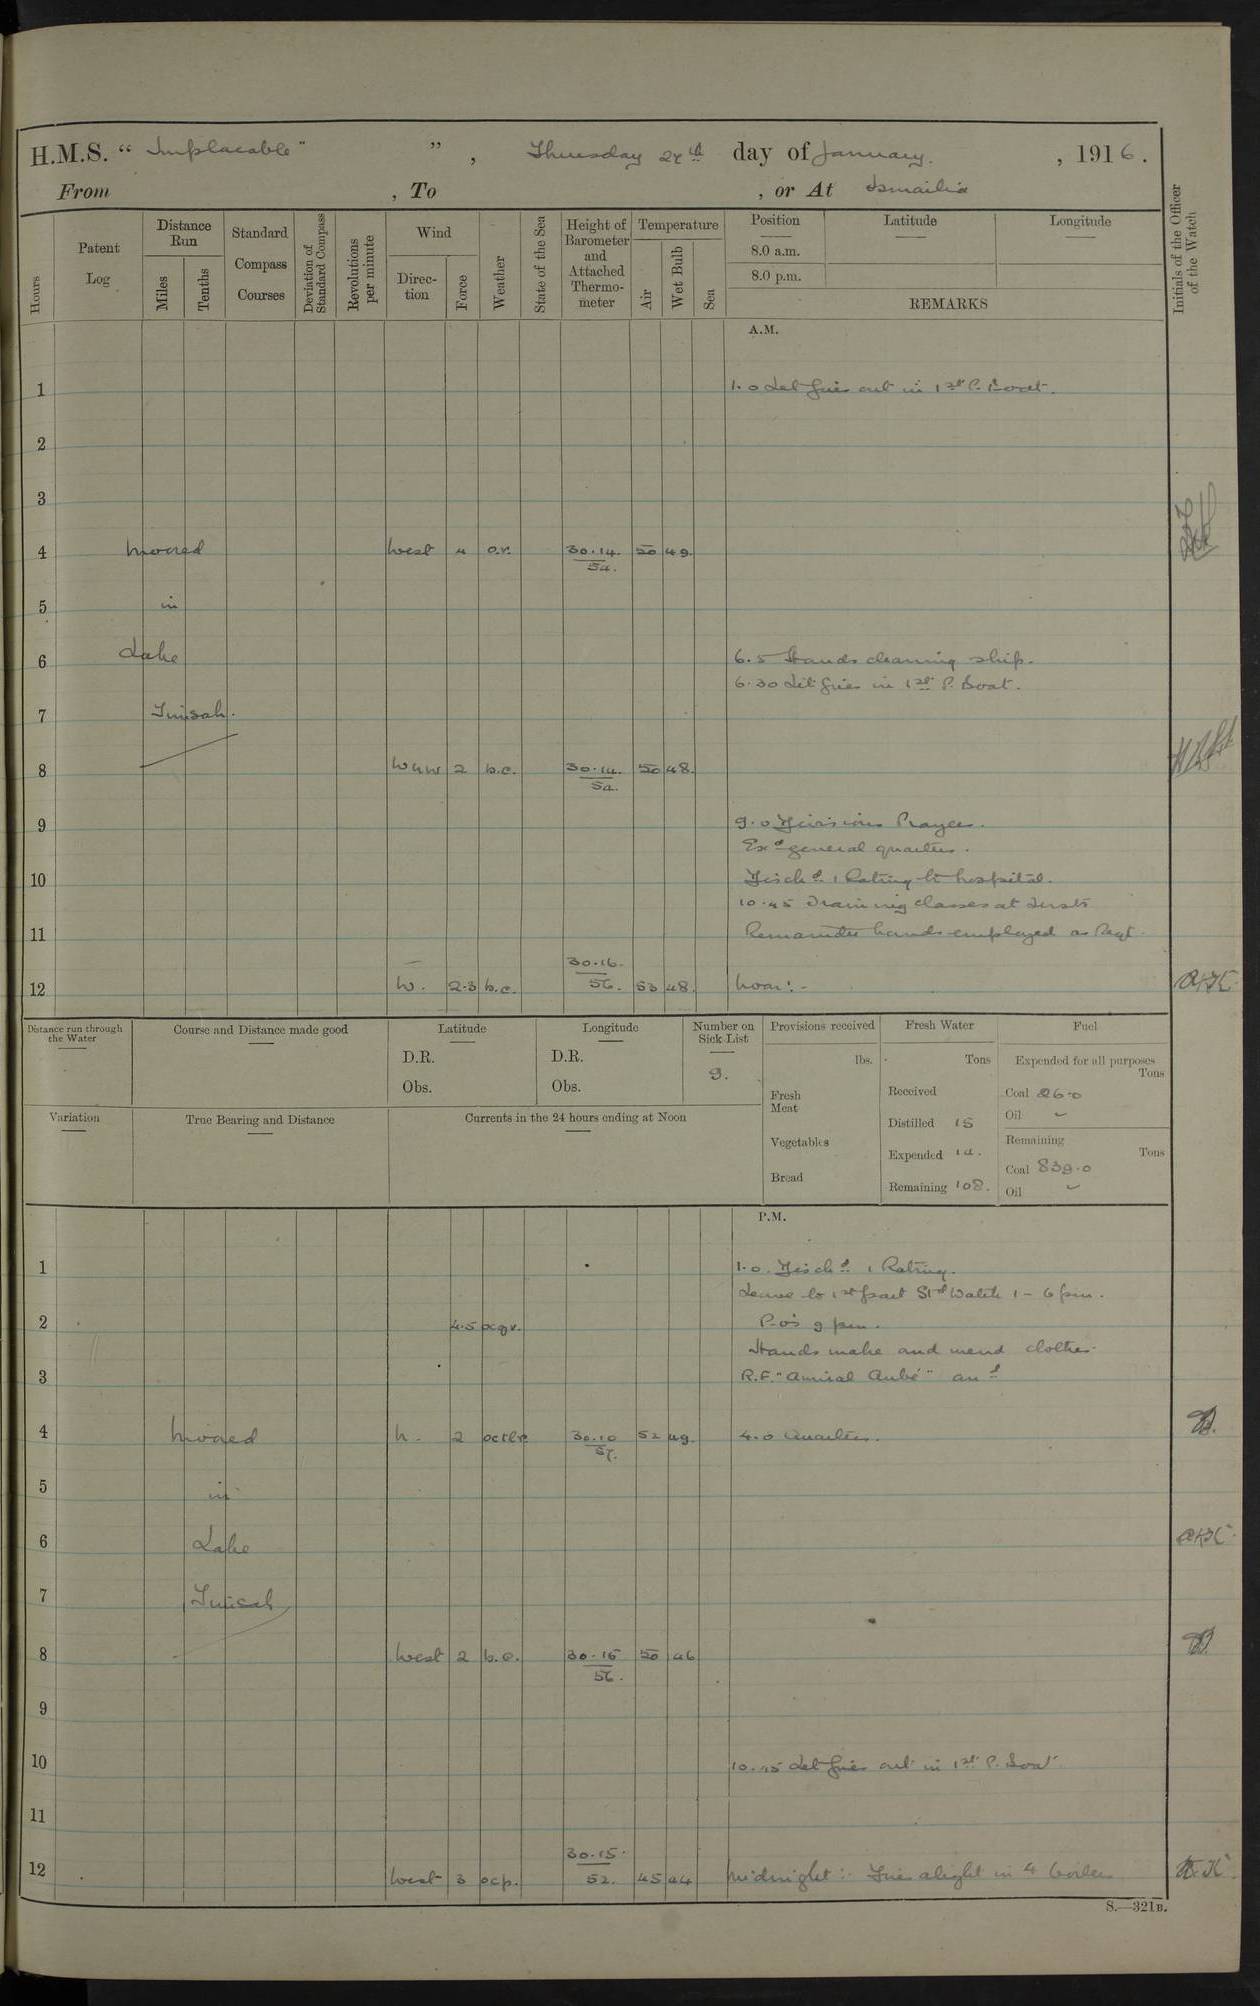 H.M.S. “ Implacable" ” , Thursday 27th day of January. , 1916 .
From , To , or At Ismailia
Hours
Patent Log
Distance Run
Miles
Tenths
Standard Compass Courses
Deviation of Standard Compass
Revolutions per minute
Wind
Direction
Force
Weather
State of the Sea
Height of Barometer and Attached Thermometer
Temperature
Air
Wet Bulb
Sea
Position Latitude Longitude
8.0 a.m.
8.0 p.m.
REMARKS
Initials of the Officer of the Watch
A.M.
1 1.0 Let fires out in 1st P. Boat.
2
3
4 Moored West 4 o.r. 30.14. 54. 50 49.
5 in
6 Lake 6.5 Hands cleaning ship.
6.30 Lit fires in 1st P. Boat.
7 Timsah.
8 WNW 2 b.c. 30.14. 54. 50 48.
9 9.0 Divisions Prayers.
Exd general quarters.
10 Disch d. 1 Rating to hospital.
10.45 Training classes at Insts
11 Remainder hands employed as reqt.
12 W. 2-3 b.c. 30.16. 56. 53 48. Noon:-
Distance run through the Water
Course and Distance made good
Latitude
D.R.
Obs.
Longitude
D.R.
Obs.
Number on Sick List
9.
Provisions received
lbs.
Fresh Meat
Vegetables
Bread
Fresh Water
Tons
Received
Distilled 15
Expended 14.
Remaining 108.
Fuel
Expended for all purposes
Tons
Coal 26.0
Oil ~
Remaining
Tons
Coal 839.0
Oil ~
Variation
True Bearing and Distance
Currents in the 24 hours ending at Noon
P.M.
1 1.0. Disch d. 1 Rating.
Leave to 1st part Std Watch 1 - 6 pm.
2 4.5 ocqr. P.O's 9 pm.
Hands make and mend clothes.
3 R.F. "Amiral Aube" and
4 Moored N. 2 30.10 57. 52 49. 4.0 Quarters.
5 in
6 Lake
7 Timsah
8 West 2 b.c. 30.15 56. 50 46
9
10 10.15 Let fires out in 1st P. Boat
11
12 West 3 ocp. 30.15. 52. 45 44 Midnight:- Fires alight in 4 boilers
S.—321B.